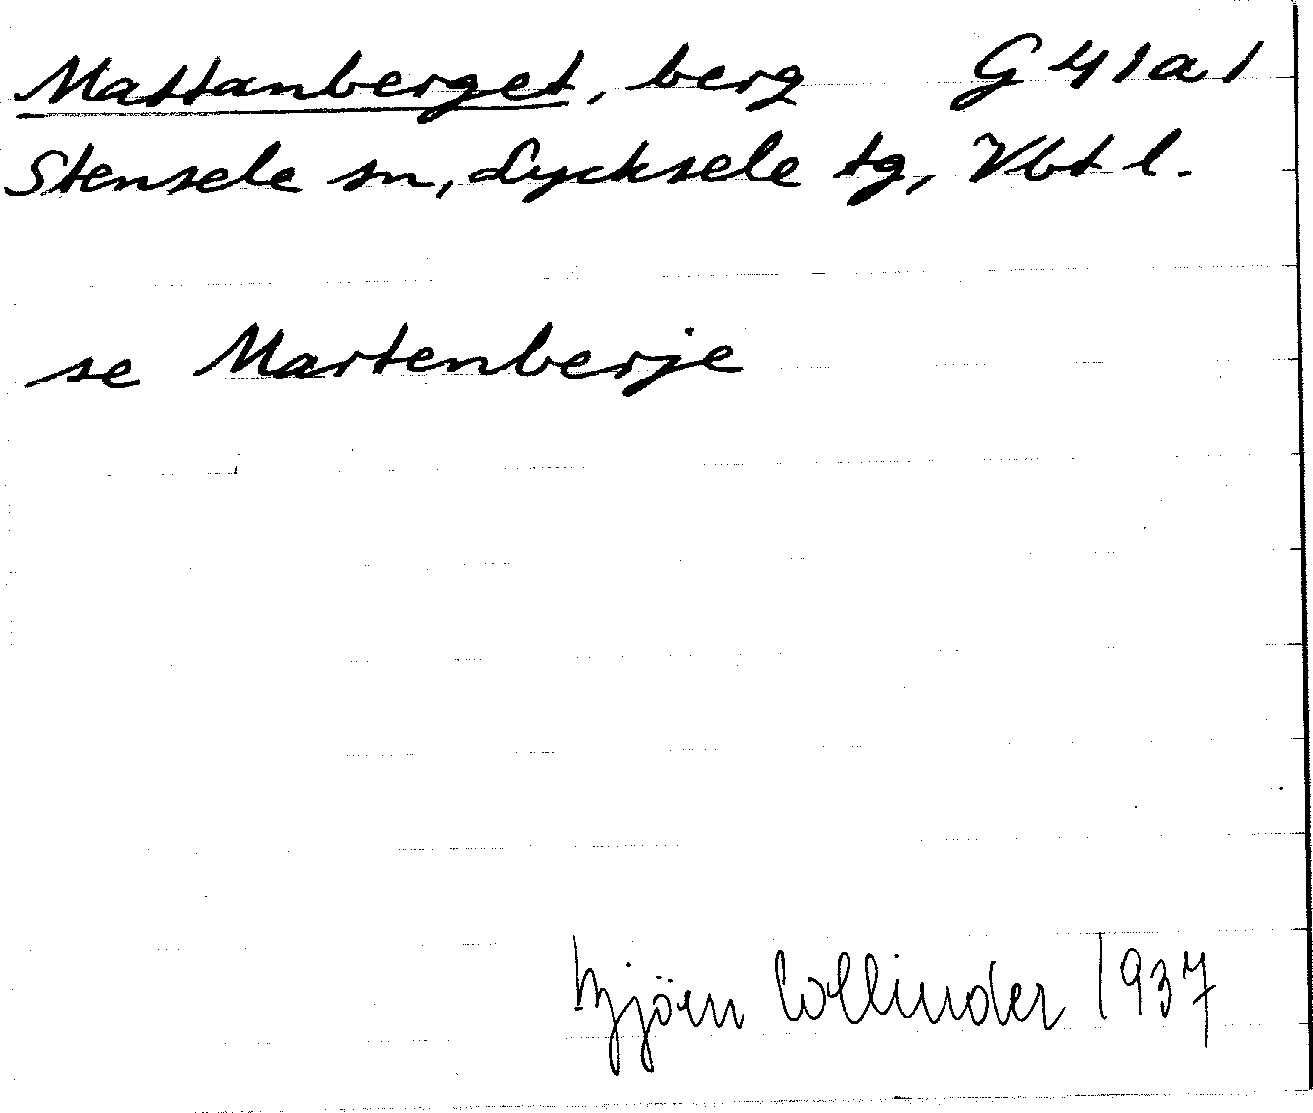 Mattanberget, berg G 41a1
Stensele sn, Lycksele tg, Vbt l.
se Martenberje
Björn Collinder 1937